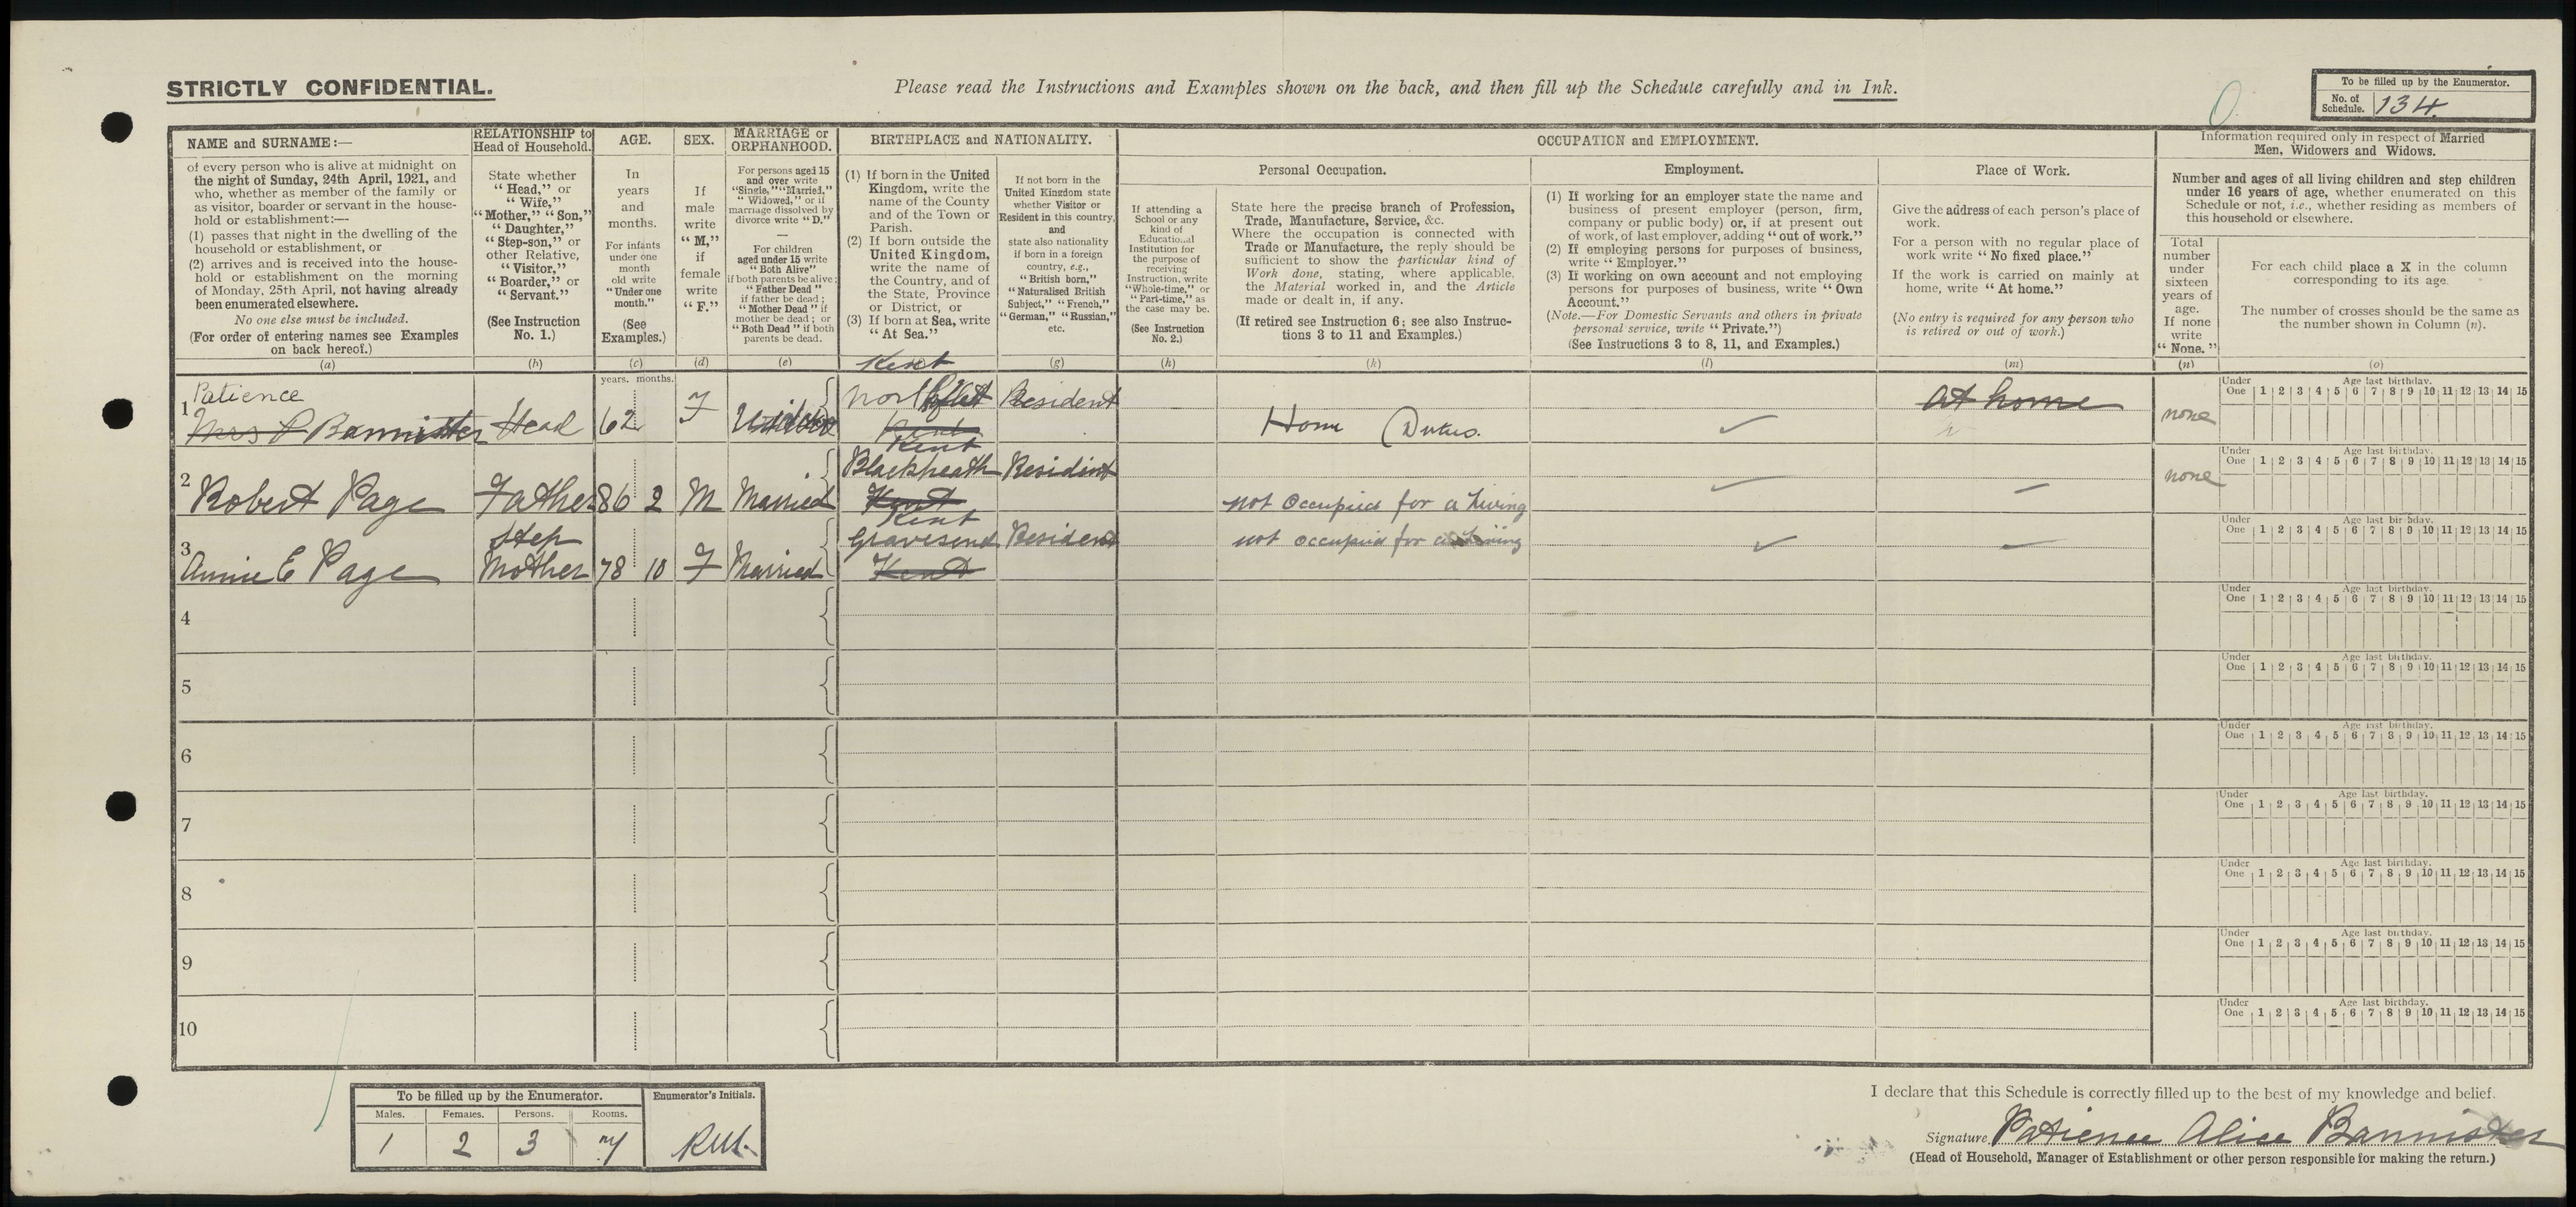 STRICTLY CONFIDENTIAL.
Please read the Instructions and Examples shown on the back, and then fill up the Schedule carefully and in Ink.
To be filled up by the Enumerator.
No. of Schedule. 134.
NAME and SURNAME:—
of every person who is alive at midnight on
the night of Sunday, 24th April, 1921, and
who, whether as member of the family or
as visitor, boarder or servant in the house-
hold or establishment:—
(1) passes that night in the dwelling of the
household or establishment, or
(2) arrives and is received into the house-
hold or establishment on the morning
of Monday, 25th April, not having already
been enumerated elsewhere.
No one else must be included.
(For order of entering names see Examples
on back hereof.)
(a)
RELATIONSHIP to
Head of Household.
State whether
"Head," or
"Wife,"
"Mother," "Son,"
"Daughter,"
"Step-son," or
other Relative,
"Visitor,"
"Boarder," or
"Servant."
(See Instruction
No. 1.)
(b)
AGE.
In
years
and
months.
For infants
under one
month
old write
"Under one
month."
(See
Examples.)
(c)
SEX.
If
male
write
"M,"
if
female
write
"F."
(d)
MARRIAGE or
ORPHANHOOD.
For persons aged 15
and over write
"Single," "Married,"
"Widowed," or if
marriage dissolved by
divorce write "D."
—
For children
aged under 15 write
"Both Alive"
if both parents be alive;
"Father Dead"
if father be dead;
"Mother Dead" if
mother be dead; or
"Both Dead" if both
parents be dead.
(e)
BIRTHPLACE and NATIONALITY.
(1) If born in the United
Kingdom, write the
name of the County
and of the Town or
Parish.
(2) If born outside the
United Kingdom,
write the name of
the Country, and of
the State, Province
or District, or
(3) If born at Sea, write
"At Sea."
If not born in the
United Kingdom state
whether Visitor or
Resident in this country,
and
state also nationality
if born in a foreign
country, e.g.,
"British born,"
"Naturalised British
Subject," "French,"
"German," "Russian,"
etc.
(g)
OCCUPATION and EMPLOYMENT.
If attending a
School or any
kind of
Educational
Institution for
the purpose of
receiving
Instruction, write
"Whole-time," or
"Part-time," as
the case may be.
(See Instruction
No. 2.)
(h)
Personal Occupation.
State here the precise branch of Profession,
Trade, Manufacture, Service, &c.
Where the occupation is connected with
Trade or Manufacture, the reply should be
sufficient to show the particular kind of
Work done, stating, where applicable,
the Material worked in, and the Article
made or dealt in, if any.
(If retired see Instruction 6; see also Instruc-
tions 3 to 11 and Examples.)
(k)
Employment.
(1) If working for an employer state the name and
business of present employer (person, firm,
company or public body) or, if at present out
of work, of last employer, adding "out of work."
(2) If employing persons for purposes of business,
write "Employer."
(3) If working on own account and not employing
persons for purposes of business, write "Own
Account."
(Note.—For Domestic Servants and others in private
personal service, write "Private.")
(See Instructions 3 to 8, 11, and Examples.)
(l)
Place of Work.
Give the address of each person's place of
work.
For a person with no regular place of
work write "No fixed place."
If the work is carried on mainly at
home, write "At home."
(No entry is required for any person who
is retired or out of work.)
(m)
Information required only in respect of Married
Men, Widowers and Widows.
Number and ages of all living children and step children
under 16 years of age, whether enumerated on this
Schedule or not, i.e., whether residing as members of
this household or elsewhere.
Total
number
under
sixteen
years of
age.
If none
write
"None."
(n)
For each child place a X in the column
corresponding to its age.
The number of crosses should be the same as
the number shown in Column (n).
(o)
years. months.
Kent
1 Patience
Mrs P Bannister Head 62 F Widow Northfleet Kent Resident Home Duties. At home none
Under One Age last birthday. 1 2 3 4 5 6 7 8 9 10 11 12 13 14 15
Kent
2 Robert Page Father 86 2 M Married Blackheath Kent Resident not Occupied for a living none
Under One Age last birthday. 1 2 3 4 5 6 7 8 9 10 11 12 13 14 15
Kent
3 Annie E Page Step Mother 78 10 F Married Gravesend Kent Resident not occupied for a living
Under One Age last birthday. 1 2 3 4 5 6 7 8 9 10 11 12 13 14 15
4 Under One Age last birthday. 1 2 3 4 5 6 7 8 9 10 11 12 13 14 15
5 Under One Age last birthday. 1 2 3 4 5 6 7 8 9 10 11 12 13 14 15
6 Under One Age last birthday. 1 2 3 4 5 6 7 8 9 10 11 12 13 14 15
7 Under One Age last birthday. 1 2 3 4 5 6 7 8 9 10 11 12 13 14 15
8 Under One Age last birthday. 1 2 3 4 5 6 7 8 9 10 11 12 13 14 15
9 Under One Age last birthday. 1 2 3 4 5 6 7 8 9 10 11 12 13 14 15
10 Under One Age last birthday. 1 2 3 4 5 6 7 8 9 10 11 12 13 14 15
To be filled up by the Enumerator.
Males. Females. Persons. Rooms.
1 2 3 7
Enumerator's Initials.
I declare that this Schedule is correctly filled up to the best of my knowledge and belief.
Signature Patience Alice Bannister
(Head of Household, Manager of Establishment or other person responsible for making the return.)